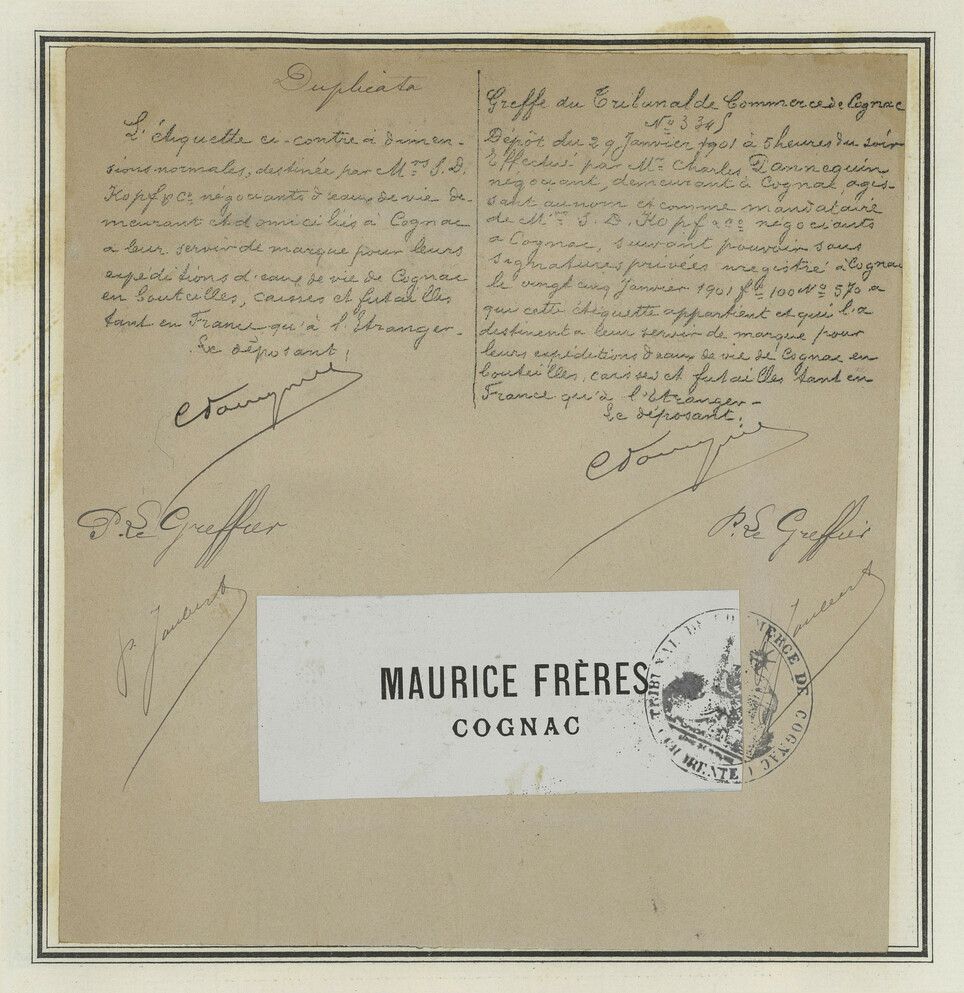 Duplicata
L'étiquette ci-contre à dimen-
sions normales, destinée par Mrs S. D.
Kopf & Co négociants d'eaux de vie de-
meurant et domiciliés à Cognac
a leur servir de marque pour leurs
expéditions d'eaux de vie de Cognac
en bouteilles, caisses et futailles
tant en France qu'à l'étranger.
Le déposant,
P. Le Greffier
P. Joubert
Greffe du Tribunal de Commerce de Cognac
No 3345
Dépôt du 29 Janvier 1901 à 5 heures du soir
Effectué par Mr Charles Dannequin
négociant, demeurant à Cognac, agis-
sant au nom et comme mandataire
de Mrs S. D. Kopf & Co négociants
a Cognac, suivant pouvoir sous
signatures privées enregistré à Cognac
le vingt cinq Janvier 1901 fo 100 No 570 a
que cette étiquette appartient et qu'il l'a
destinent a leur servir de marque pour
leurs expéditions d'eaux de vie de Cognac en
bouteilles, caisses et futailles tant en
France qu'à l'étranger-
Le déposant,
P. Le Greffier
Joubert
MAURICE FRÈRES
COGNAC
TRIBUNAL DE COMMERCE DE COGNAC
CHARENTE